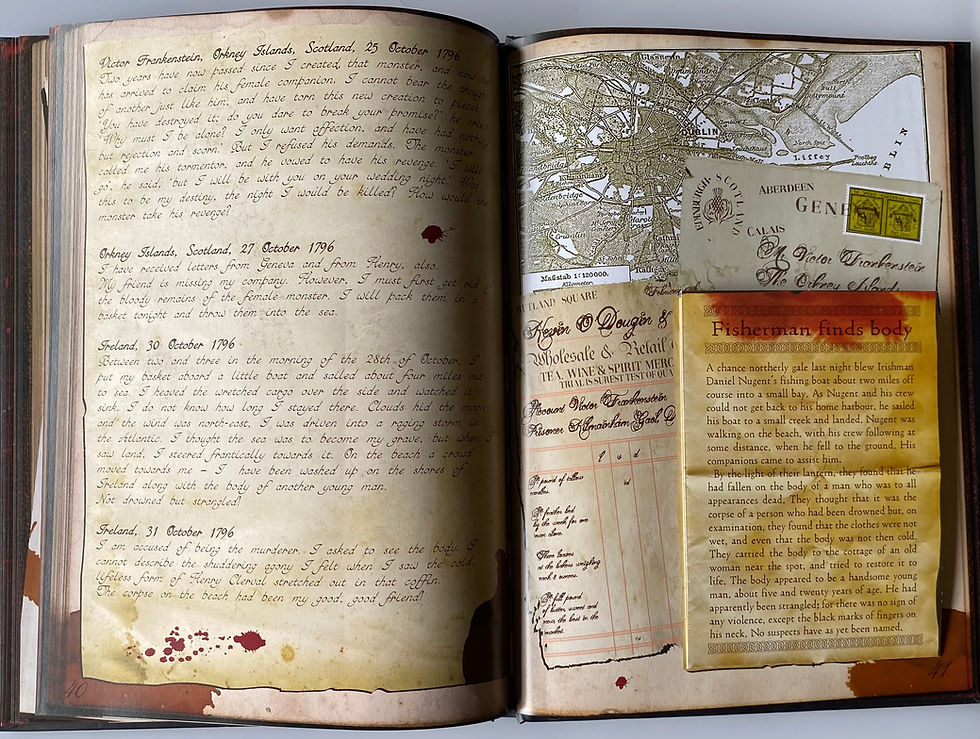 Victor Frankenstein, Orkney Islands, Scotland, 25 October 1796
Two years have now passed since I created that monster, and now he
has arrived to claim his female companion. I cannot bear the thought
of another just like him, and have torn this new creation to pieces.
'You have destroyed it; do you dare to break your promise?' he cried.
'Why must I be alone? I only want affection, and have had nothing
but rejection and scorn.' But I refused his demands. The monster
called me his tormentor, and he vowed to have his revenge. 'I will
go', he said, 'but I will be with you on your wedding night.' Was
this to be my destiny, the night I would be killed? How would the
monster take his revenge!
Orkney Islands, Scotland, 27 October 1796
I have received letters from Geneva and from Henry, also.
My friend is missing my company. However, I must first get rid of
the bloody remains of the female monster. I will pack them in a
basket tonight and throw them into the sea.
Ireland, 30 October 1796
Between two and three in the morning of the 28th of October, I
put my basket aboard a little boat and sailed about four miles out
to sea. I heaved the wretched cargo over the side and watched it
sink. I do not know how long I stayed there. Clouds hid the moon
and the wind was north-east. I was driven into a raging storm in
the Atlantic. I thought the sea was to become my grave, but when I
saw land, I steered frantically towards it. On the beach a crowd
moved towards me – I have been washed up on the shores of
Ireland along with the body of another young man.
Not drowned but strangled!
Ireland, 31 October 1796
I am accused of being the murderer. I asked to see the body. I
cannot describe the shuddering agony I felt when I saw the cold,
lifeless form of Henry Clerval stretched out in that coffin.
The corpse on the beach had been my good, good friend!
40
Glasnevin
DUBLIN
Liffey
North Spit
Poolbeg
Kilmainham
Crumlin
Harold
BLIN
Maßstab 1:120000.
Kilometer
EDINBURGH SCOTLAND
ABERDEEN
GENE
CALAIS
Victor Frankenstein
The Orkney Islands
RUTLAND SQUARE
February
Kevin O'Dougin &
Wholesale & Retail
TEA, WINE & SPIRIT MERC
TRIAL IS SUREST TEST OF QUA
Account Victor Frankenstein
Prisoner Kilmainham Gaol, D
l s d
pound of tallow
candles.
feather bed
by the week for one
man alone.
Three loaves
at the bakers weighing
each 2 ounces.
full pound
of butter, sweet and
new, the best in the
market.
Fisherman finds body
A chance northerly gale last night blew Irishman
Daniel Nugent's fishing boat about two miles off
course into a small bay. As Nugent and his crew
could not get back to his home harbour, he sailed
his boat to a small creek and landed. Nugent was
walking on the beach, with his crew following at
some distance, when he fell to the ground. His
companions came to assist him.
By the light of their lantern, they found that he
had fallen on the body of a man who was to all
appearances dead. They thought that it was the
corpse of a person who had been drowned but, on
examination, they found that the clothes were not
wet, and even that the body was not then cold.
They carried the body to the cottage of an old
woman near the spot, and tried to restore it to
life. The body appeared to be a handsome young
man, about five and twenty years of age. He had
apparently been strangled; for there was no sign of
any violence, except the black marks of fingers on
his neck. No suspects have as yet been named.
41